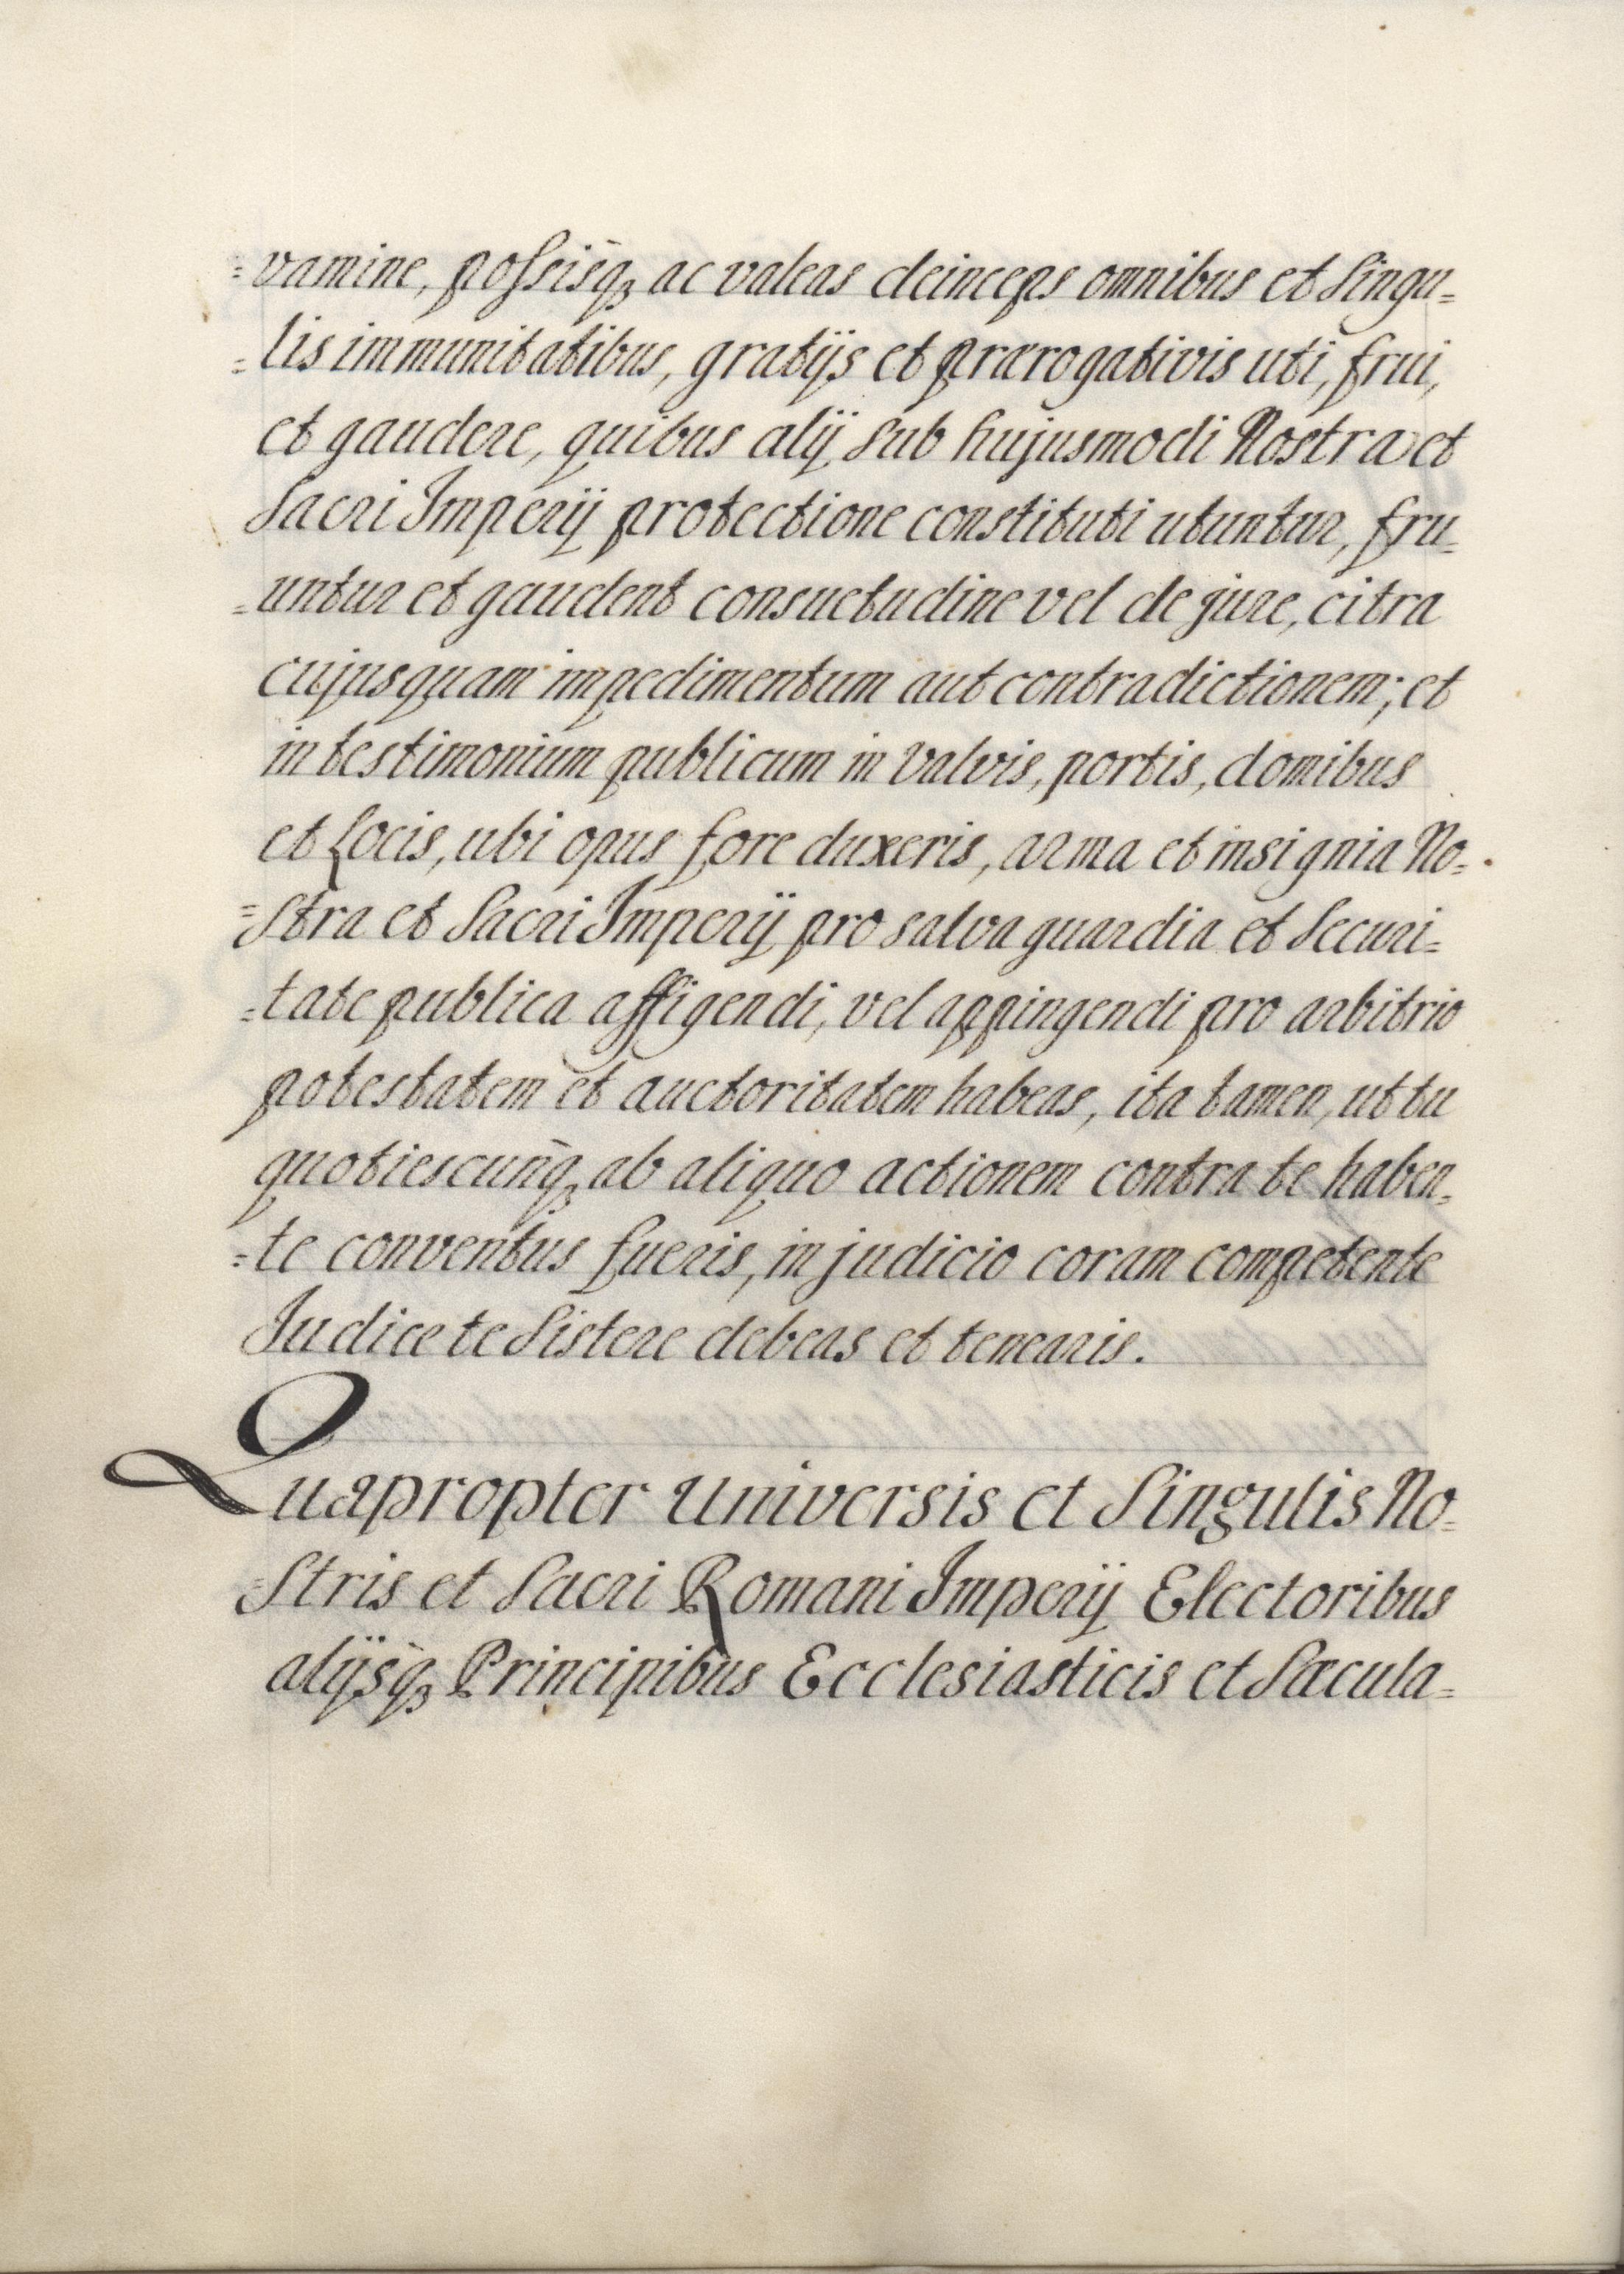 =vamine, possisq̀ꝫ ac valeas deinceps omnibus et singu=
=lis immunitatibus, gratijs et prærogativis uti, frui,
et gaudere, quibus alij sub hujusmodi Nostra et
Sacri Imperij protectione constituti utuntur, fru=
=untur et gaudent consuetudine vel de jure, citra
cujusquam impedimentum aut contradictionem; et
in testimonium publicum in valvis, portis, domibus
et Locis, ubi opus fore duxeris, arma et insignia No=
=stra et Sacri Imperij pro salva guardia et securi=
=tate publica affigendi, vel appingendi pro arbitrio
potestatem et auctoritatem habeas, ita tamen, ut tu
quotiescunq̀ꝫ ab aliquo actionem contra te haben=
=te conventus fueris, in judicio coram competente
Judice te sistere debeas et tenearis.
Quapropter universis et singulis No=
=stris et Sacri Romani Imperij Electoribus
alijsq̀ꝫ Principibus Ecclesiasticis et Sæcula=